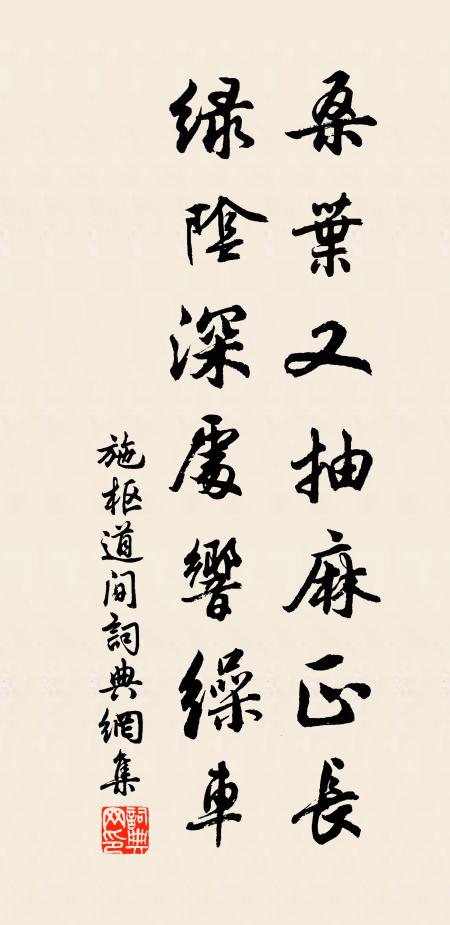 桑葉又抽麻正長
綠陰深處響繅車
施枢道间詞典網集
詞典网印